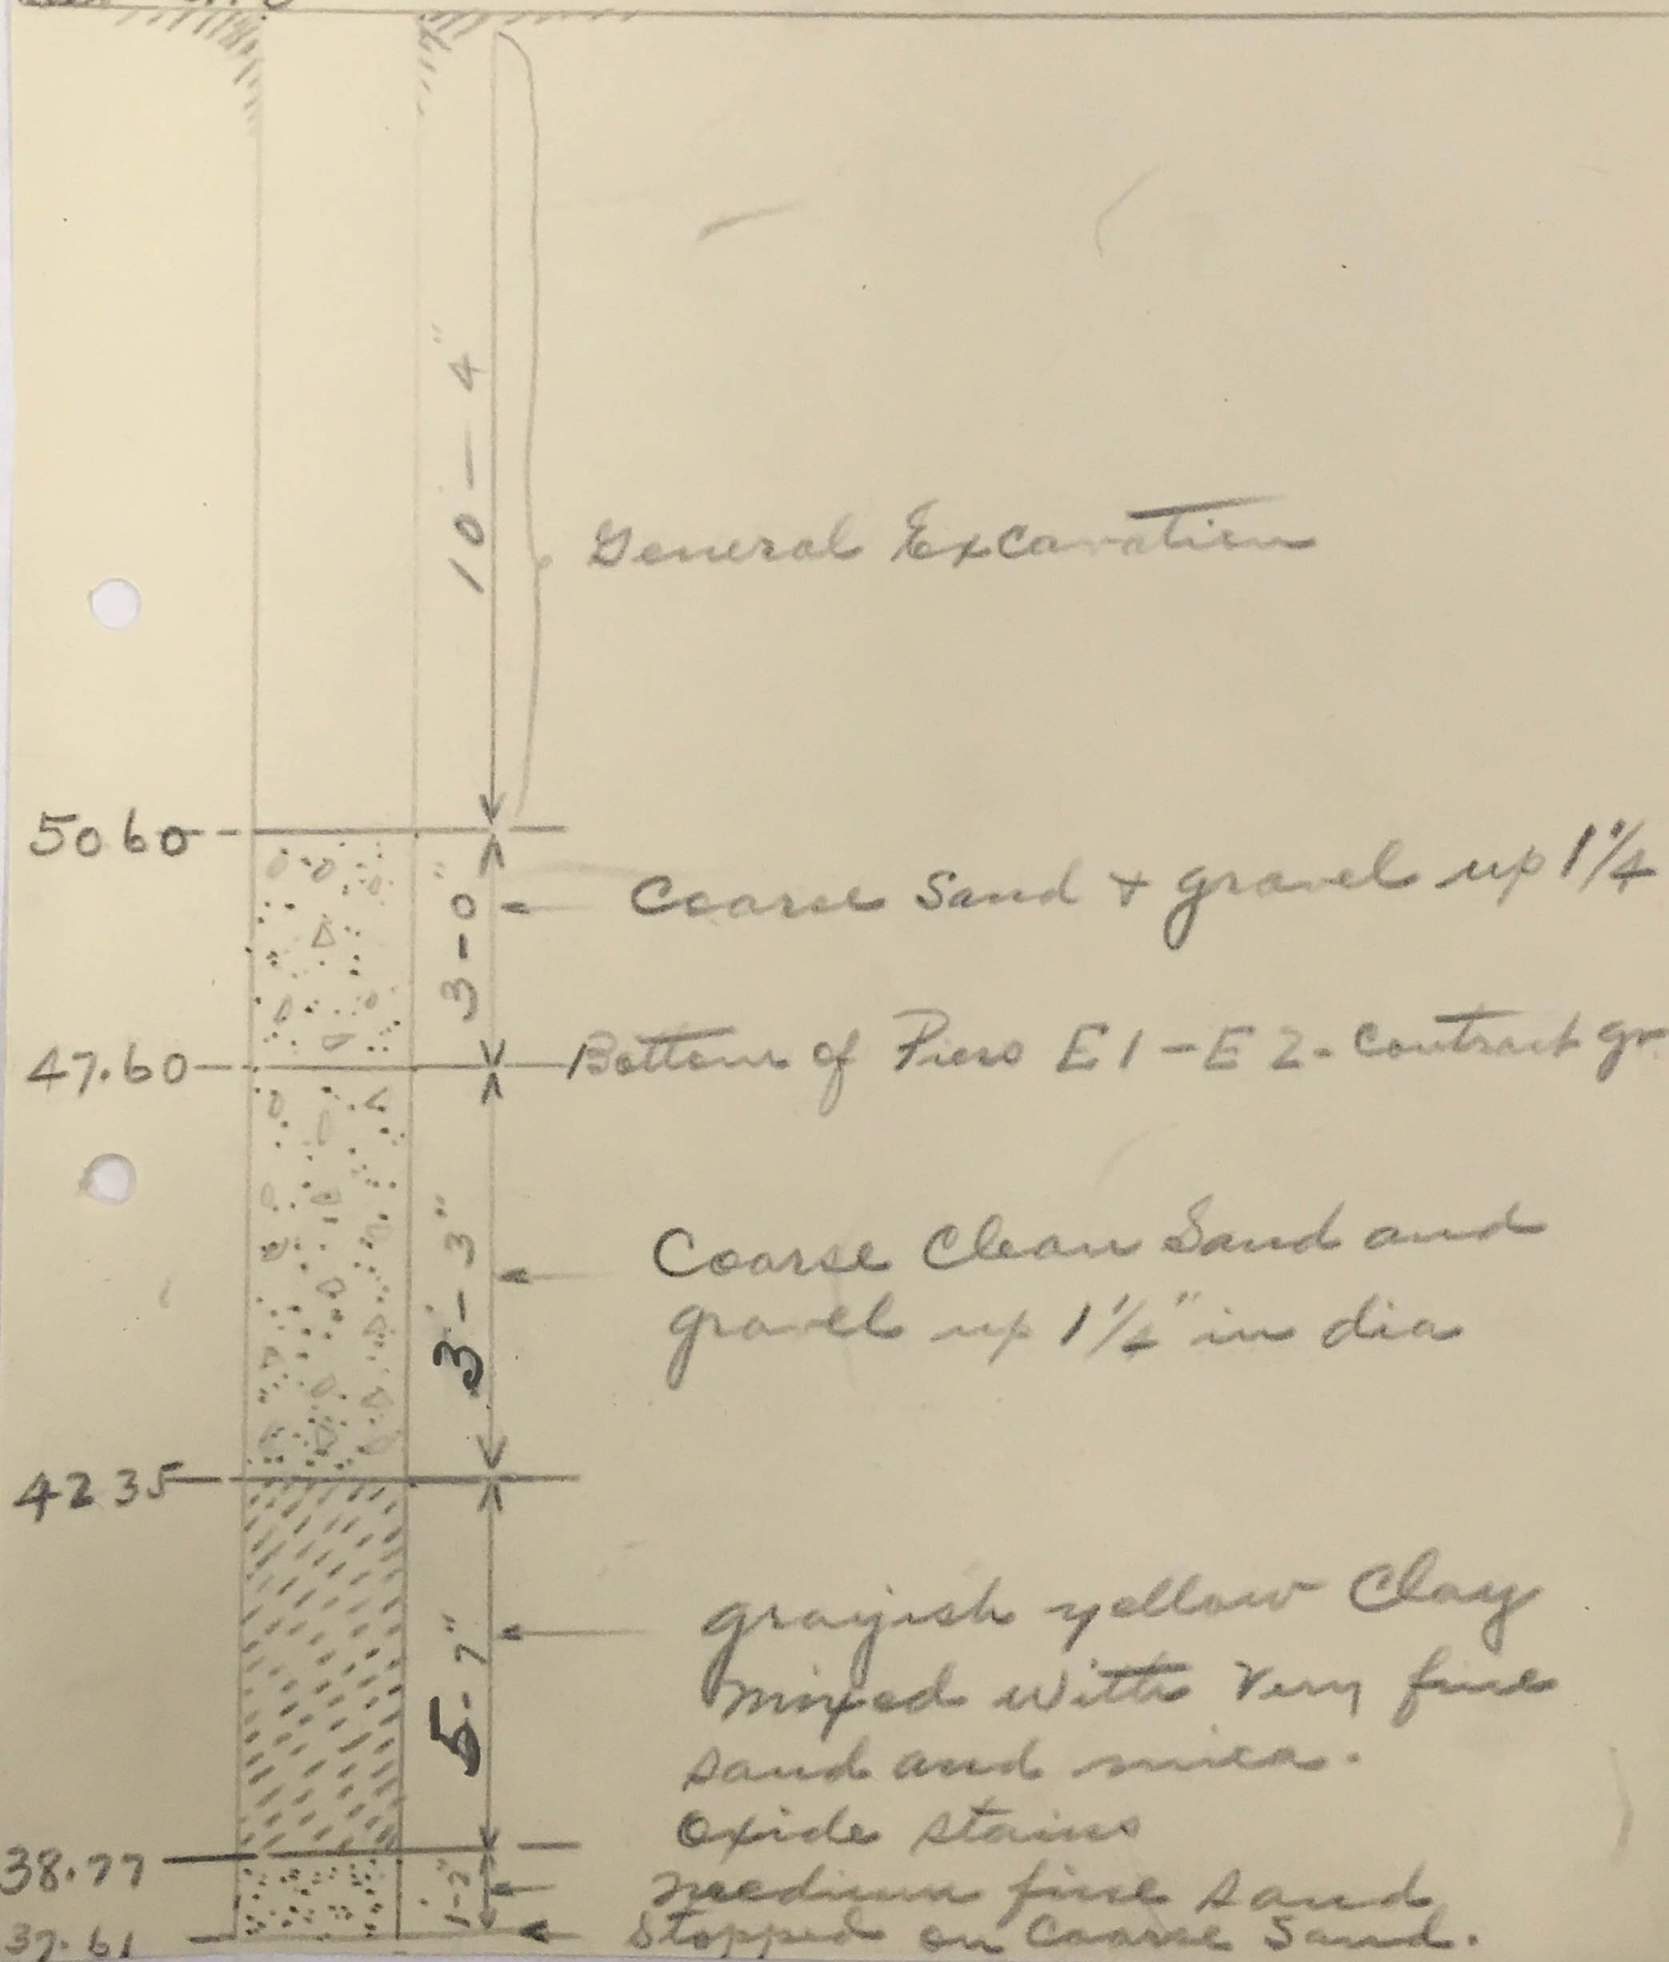 10-4"
General Excavation
50.60
3-0"
Coarse Sand + gravel up 1 1/4
47.60
Bottom of Piers E1-E2- Contract gr
3'-3"
Coarse Clean Sand and
gravel up 1 1/4" in dia
42.35
5-7"
grayish yellow Clay
mixed with very fine
sand and mica.
Oxide stains
38.77
1-2"
medium fine sand
37.61
Stopped on Coarse Sand.